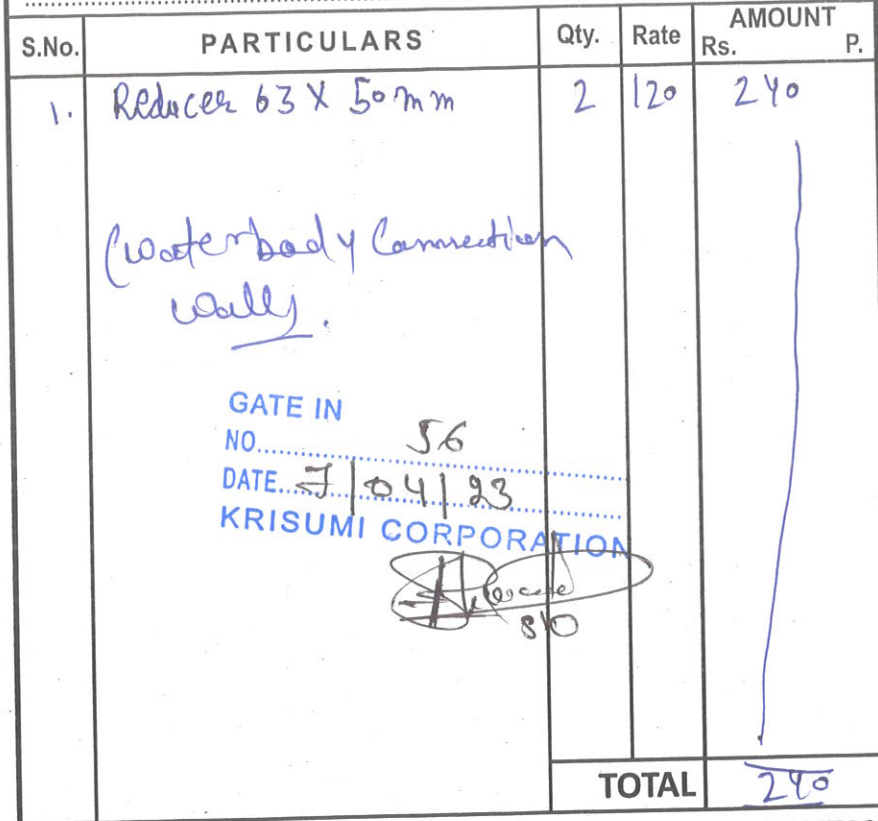 S.No. PARTICULARS Qty. Rate AMOUNT
Rs. P.
1. Reducer 63 X 50 mm 2 120 240
(Waterbody Connection
wally.
GATE IN
NO. 56
DATE. 7/04/23
KRISUMI CORPORATION
S/O
TOTAL 240